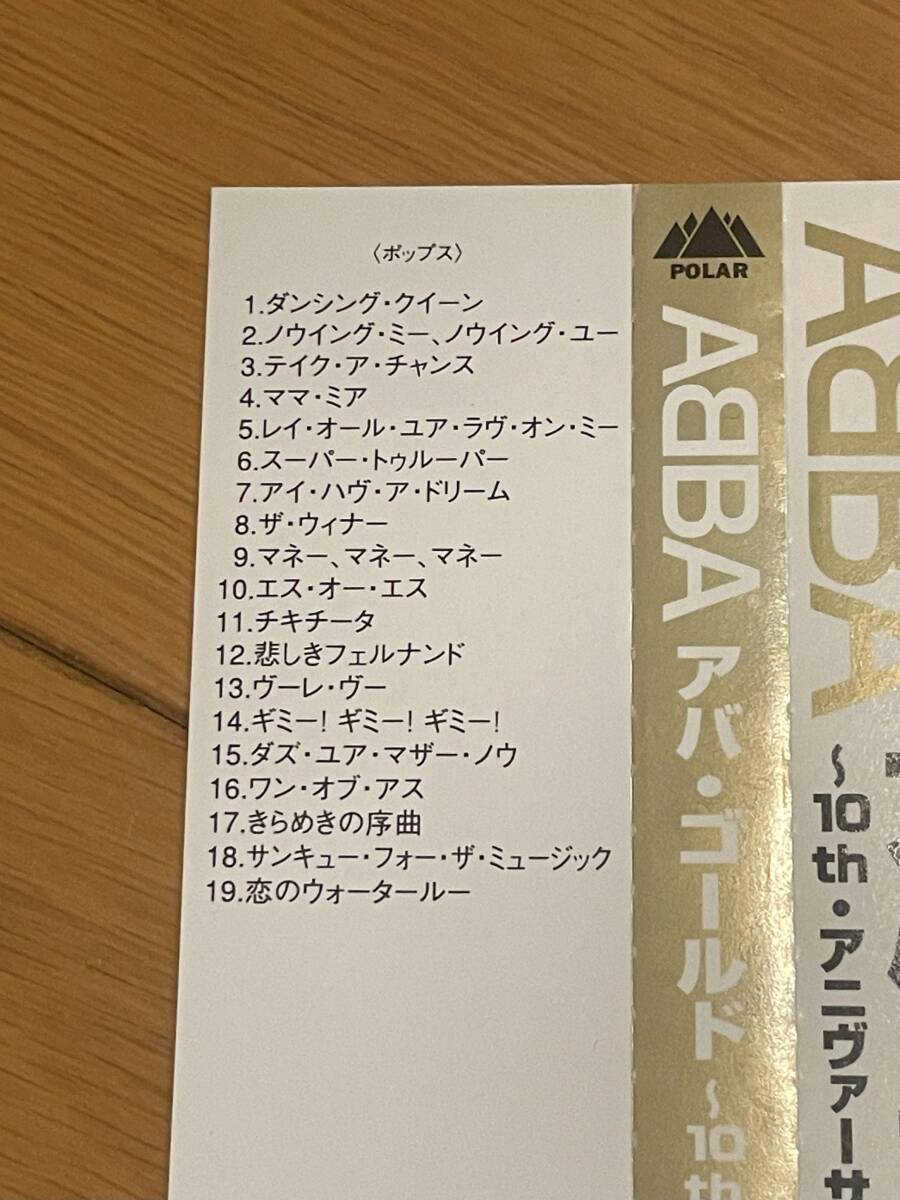 〈ポップス〉
1.ダンシング・クイーン
2.ノウイング・ミー、ノウイング・ユー
3.テイク・ア・チャンス
4.ママ・ミア
5.レイ・オール・ユア・ラヴ・オン・ミー
6.スーパー・トゥルーパー
7.アイ・ハヴ・ア・ドリーム
8.ザ・ウィナー
9.マネー、マネー、マネー
10.エス・オー・エス
11.チキチータ
12.悲しきフェルナンド
13.ヴーレ・ヴー
14.ギミー！ギミー！ギミー！
15.ダズ・ユア・マザー・ノウ
16.ワン・オブ・アス
17.きらめきの序曲
18.サンキュー・フォー・ザ・ミュージック
19.恋のウォータールー
POLAR
ABBA® アバ・ゴールド～10th
ABBA
～10th・アニヴァーサ